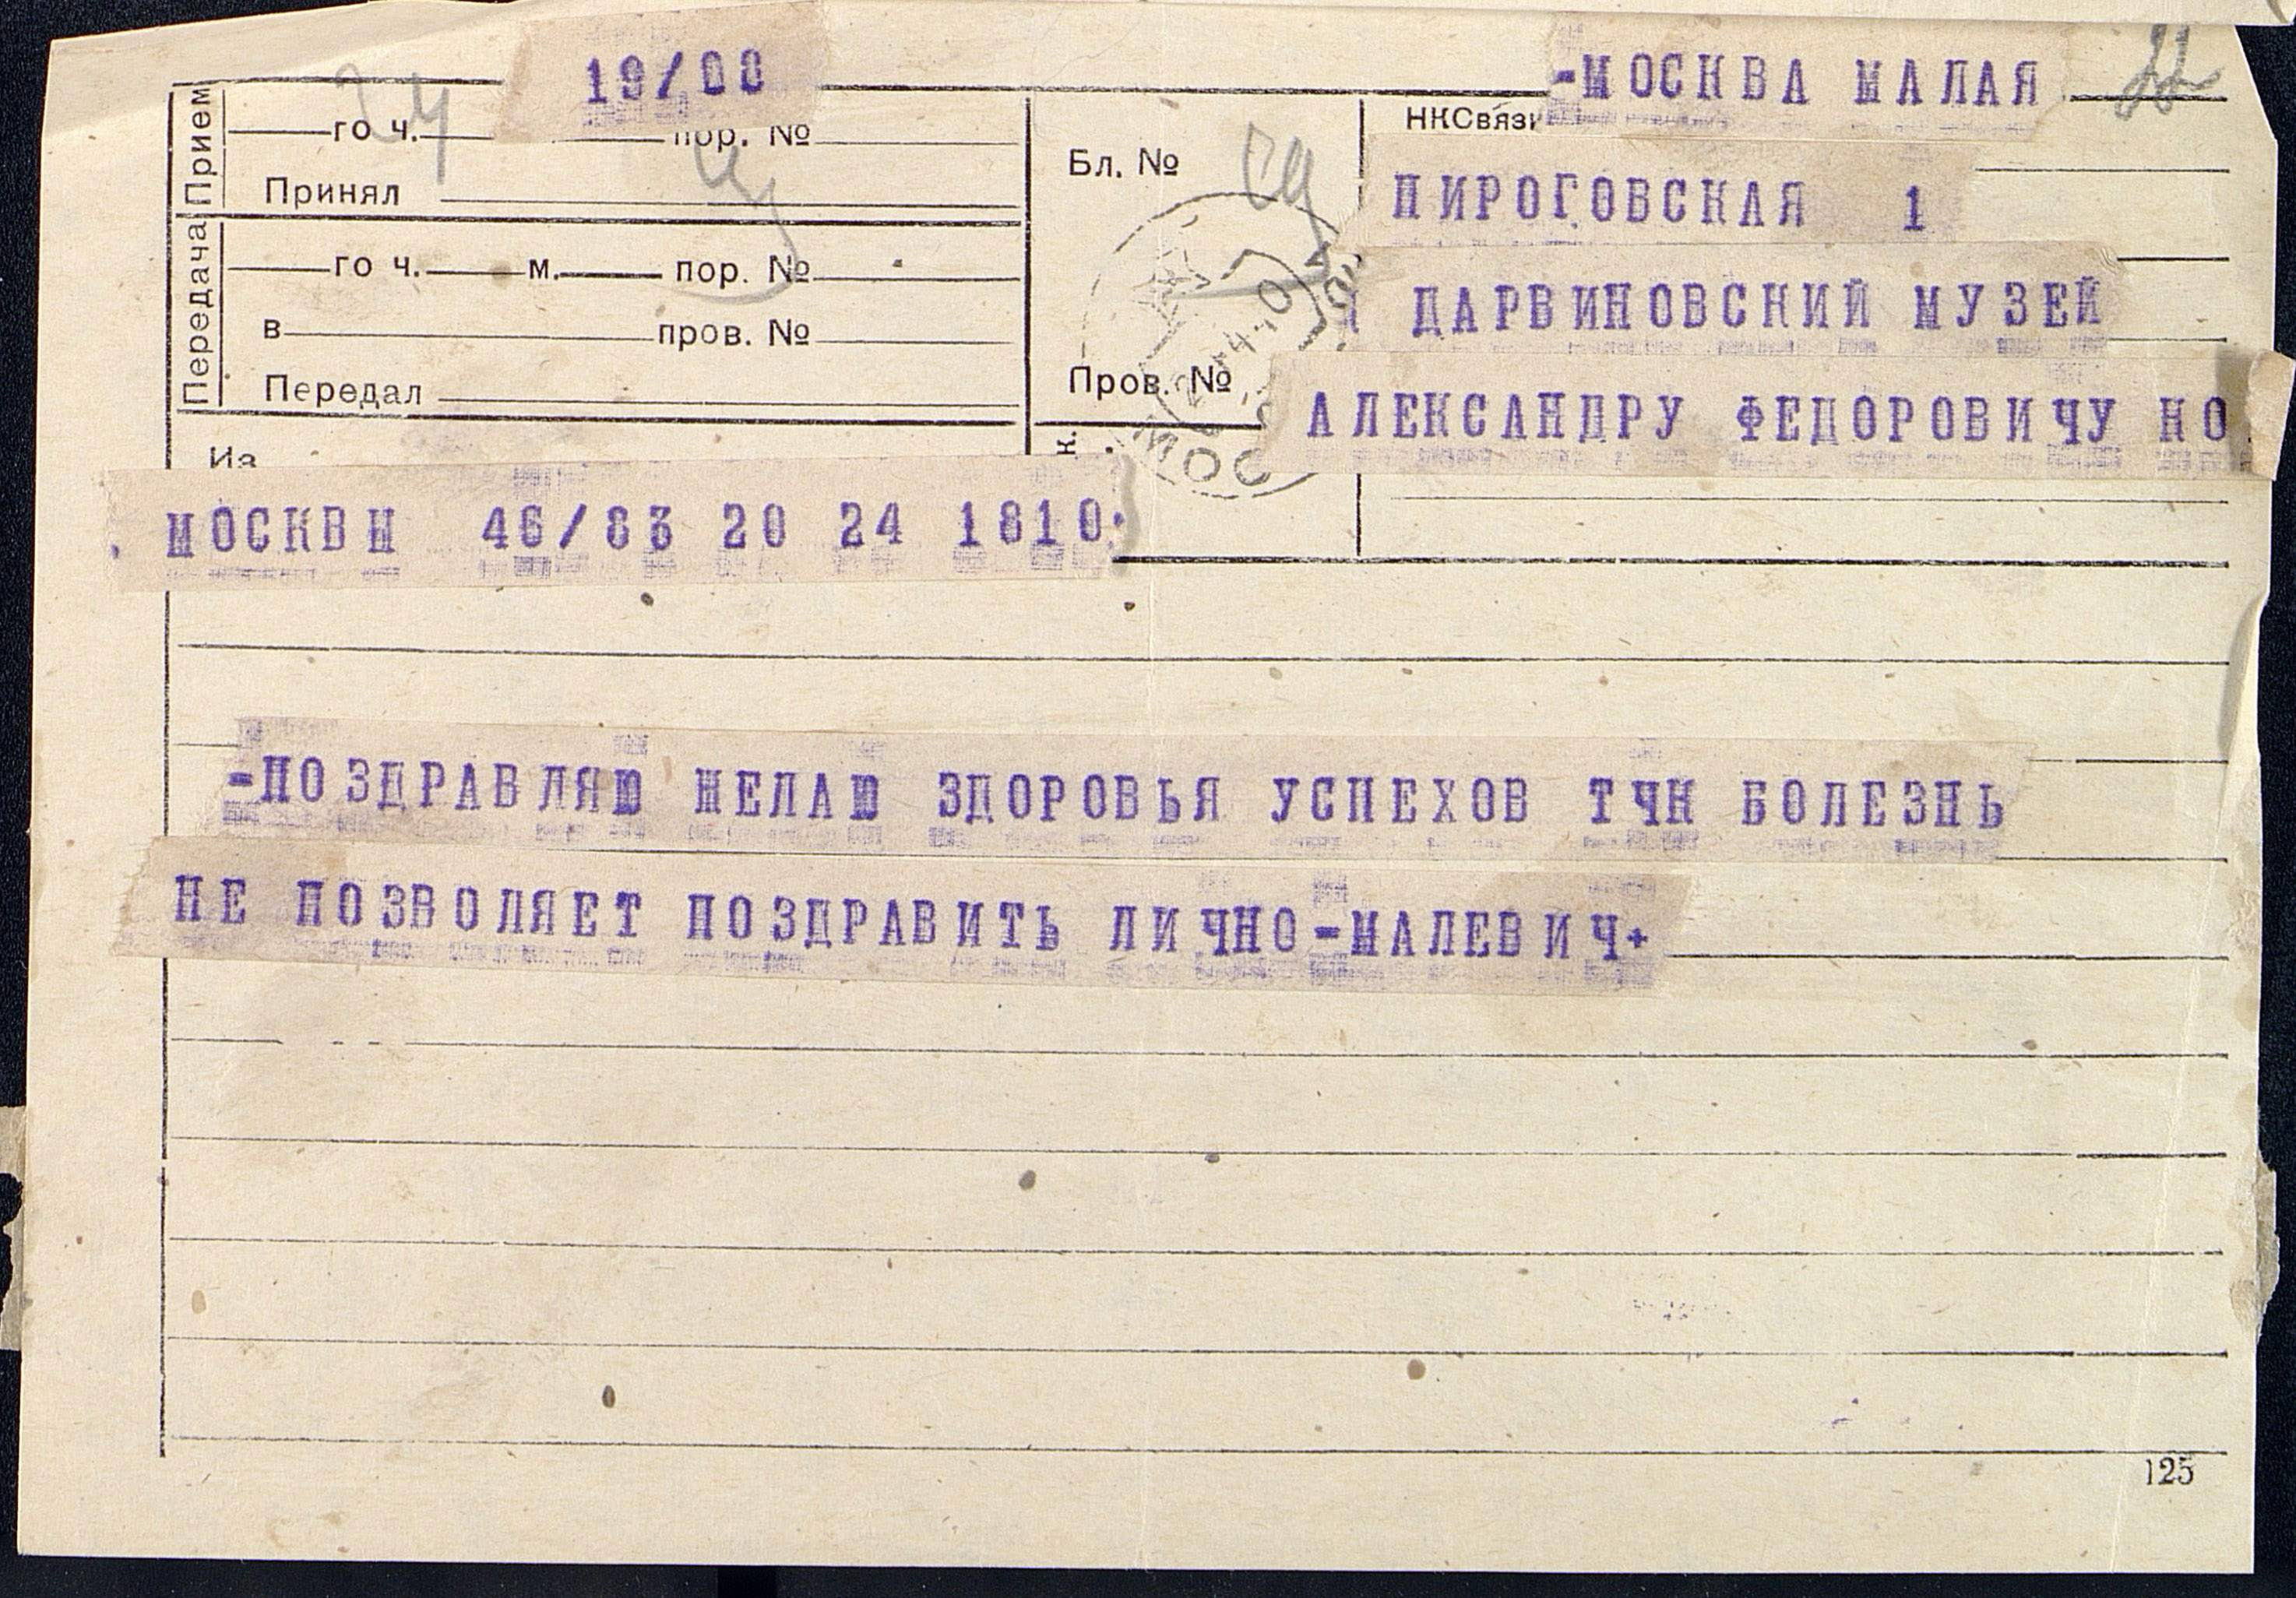 19/00
-МОСКВА МАЛАЯ
Прием
го ч. пор. №
НКСвязи
Бл. №
Принял
ПИРОГОВСКАЯ 1
Передача
го ч. м. пор. №
ДАРВИНОВСКИЙ МУЗЕЙ
в пров. №
Передал
Пров. №
АЛЕКСАНДРУ ФЕДОРОВИЧУ КО
МОС
Из
МОСКВЫ 46/83 20 24 1810
-ПОЗДРАВЛЯЮ ЖЕЛАЮ ЗДОРОВЬЯ УСПЕХОВ ТЧК БОЛЕЗНЬ
НЕ ПОЗВОЛЯЕТ ПОЗДРАВИТЬ ЛИЧНО-МАЛЕВИЧ+
125